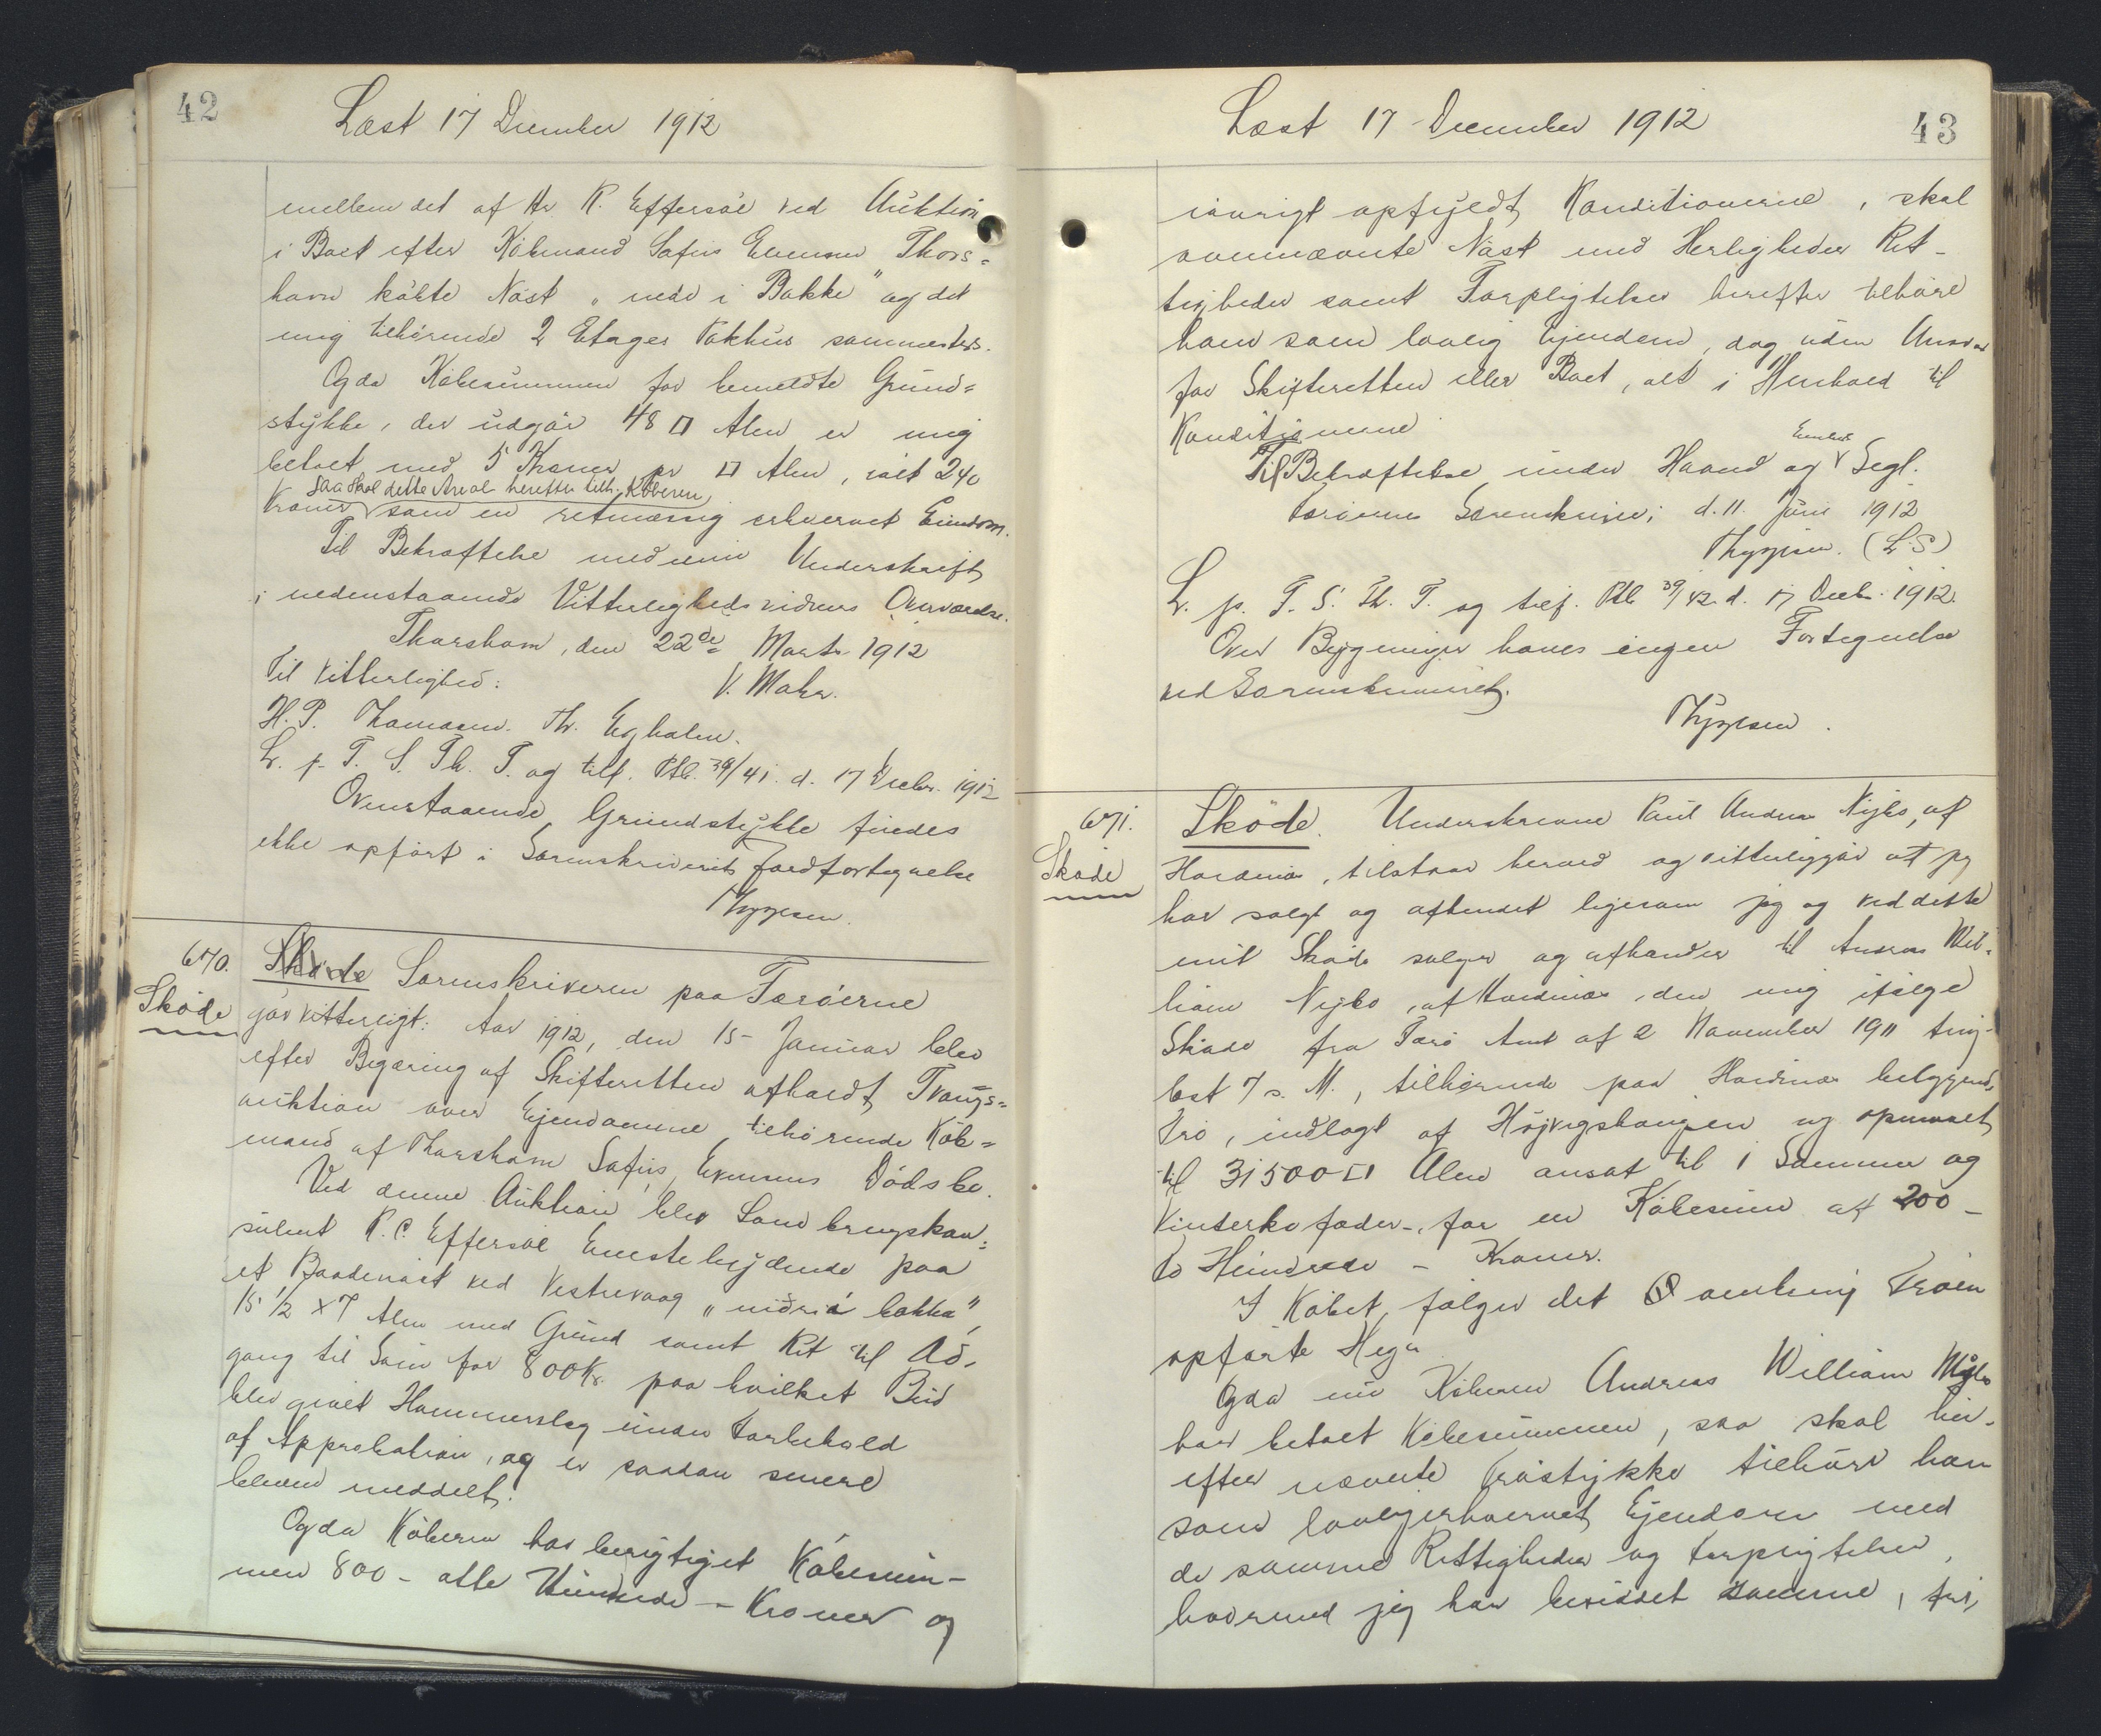 42
Læst 17 December 1912
mellem det af Hr. K. Effersøe ved Auktion
i Boet efter Købmand Sofus Evensen Thors=
havn købte Nøst „nede i Bakke" og det
mig tilhørende 2 Etages Pakhus sammesteds.
Og da Købesummen for bemeldte Grund=
stykke, der udgør 48 □ Alen er mig
betalt med 5 Kroner pr □ Alen, ialt 240
saa skal dette Areal herefter tilh. Køberen
Kroner som en retmæssig erhvervet Eiendom.
Til Bekræftelse med min Underskrift
i nedenstaaende Vitterlighedsvidners Overværelse.
Thorshavn, den 22de Marts 1912
Til Vitterlighed: V. Mohr.
H. P. Thomasen. Th. Egholm.
L. p. F. S. Th. T. og tilf. Ptb. 39/41. d. 17 Decbr. 1912
Ovenstaaende Grundstykke findes
ikke opført i Sorenskriveriets Jordfortegnelse
Thygesen.
670.
Skøde
Skøde Sorenskriveren paa Færøerne
gør vitterligt: Aar 1912, den 15- Januar blev
efter Begæring af Skifteretten afholdt Tvangs=
auktion over Ejendommene tilhørende Køb=
mand af Thorshavn Sofus Evensens Dødsbo.
Ved denne Auktion blev Landbrugskon=
sulent K. C. Effersøe Eneste bydende paa
et Baadenøst ved Vestrevaag „niðri á bakka",
15 1/2 x 7 Alen med Grund samt Ret til Ad-
gang til Søen for 800 Kr. paa hvilket Bud
blev givet Hammerslag under Forbehold
af Approbation, og er saadan senere
bleven meddelt.
Og da Køberen har berigtiget Købesum-
men 800 - otte Hundrede - Kroner og
Læst 17 December 1912
43
iøvrigt opfyldt Konditionerne, skal
ovennævnte Nøst med Herligheder Ret-
tigheder samt Forpligtelser herefter tilhøre
ham som lovlig Ejendom, dog uden Ansvar
for Skifteretten eller Boet, alt i Henhold til
Konditionerne
Til Bekræftelse under Haand og Embeds Segl.
Færøernes Sorenskriveri d. 11. Juni 1912
Thygesen. (L.S)
L. p. F. S. Th. T. og tilf. Ptb. 39/42 d. 17 Decbr. 1912.
Over Bygninger haves ingen Fortegnelse
ved Sorenskriveriet.
Thygesen.
671.
Skøde
Skøde. Underskrevne Poul Andreas Nybo, af
Hordenæs, tilstaar herved og vitterliggør at jeg
har solgt og afhendet ligesom jeg og ved dette
mit Skøde sælger og afhænder til Andreas Wil-
liam Nybo, af Hordenæs, den mig ifølge
Skøde fra Færø Amt af 2 November 1911 ting-
læst 7 s. M., tilhørende paa Hordenæs belyggende
Trø, indlagt af Højvigshaugen og opmaalt
til 31500 □ Alen ansat til 1 Sommer og
Vinterkofoder - for en Købesum af 200 -
to Hundrede - Kroner.
I Købet følger det omkring Trøen
opførte Hegn
Og da nu Køberen Andreas William Nybo
har betalt Købesummen, saa skal her-
efter nævnte Trøstykke tilhøre ham
som lovligerhvervet Ejendom med
de samme Rettigheder og Forpligtelser,
hvormed jeg har besiddet samme, fri,